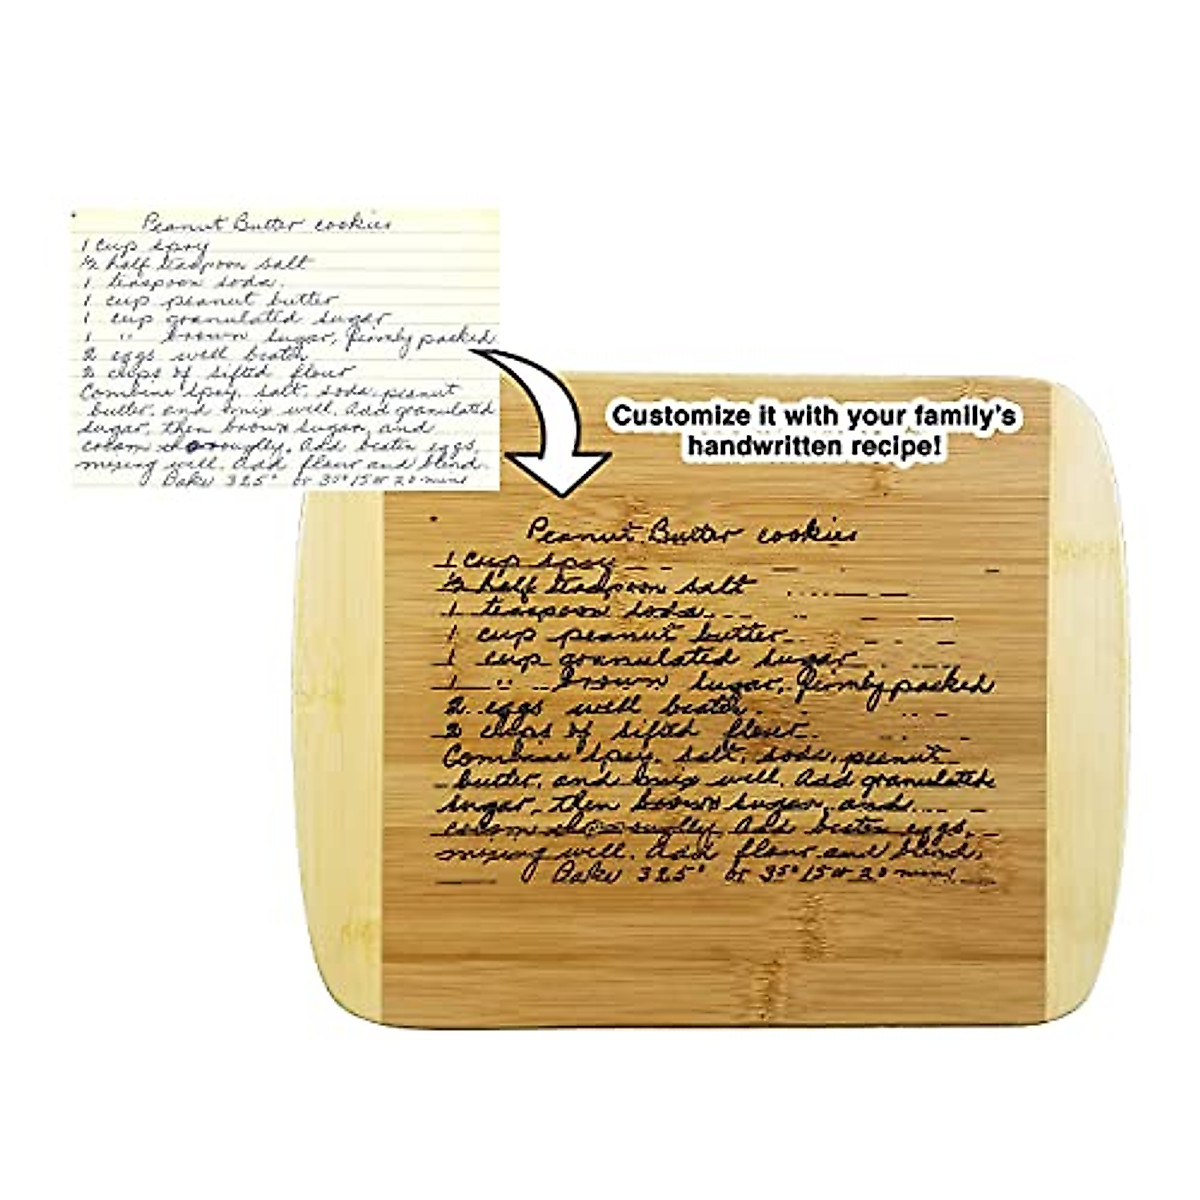 Peanut Butter cookies
1 cup spry
½ half teaspoon salt
1 teaspoon soda.
1 cup peanut butter
1 cup granulated sugar
1 " brown sugar, firmly packed
2 eggs well beaten
2 cups of sifted flour
Combine spry, salt, soda, peanut
butter, and mix well. Add granulated
sugar, then brown sugar, and
cream thoroughly. Add beaten eggs,
mixing well. Add flour and blend.
Bake 325° or 35° 15 or 20 mins
Customize it with your family's
handwritten recipe!
Peanut Butter cookies
1 cup spry
½ half teaspoon salt
1 teaspoon soda.
1 cup peanut butter
1 cup granulated sugar
1 " brown sugar, firmly packed
2 eggs well beaten
2 cups of sifted flour
Combine spry, salt, soda, peanut
butter, and mix well. Add granulated
sugar, then brown sugar, and
cream thoroughly. Add beaten eggs,
mixing well. Add flour and blend.
Bake 325° or 35° 15 or 20 mins